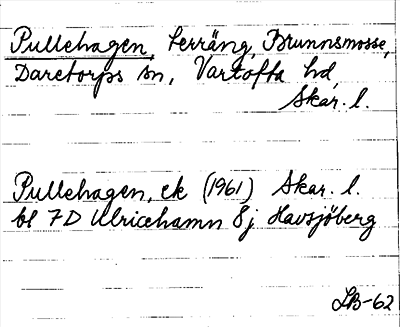 Pullehagen, terräng, Brunnsmosse,
Daretorps sn, Vartofta hd,
Skar. l.
Pullehagen, ek (1961) Skar. l.
bl 7D Ulricehamn 8j Havsjöberg
LB-62